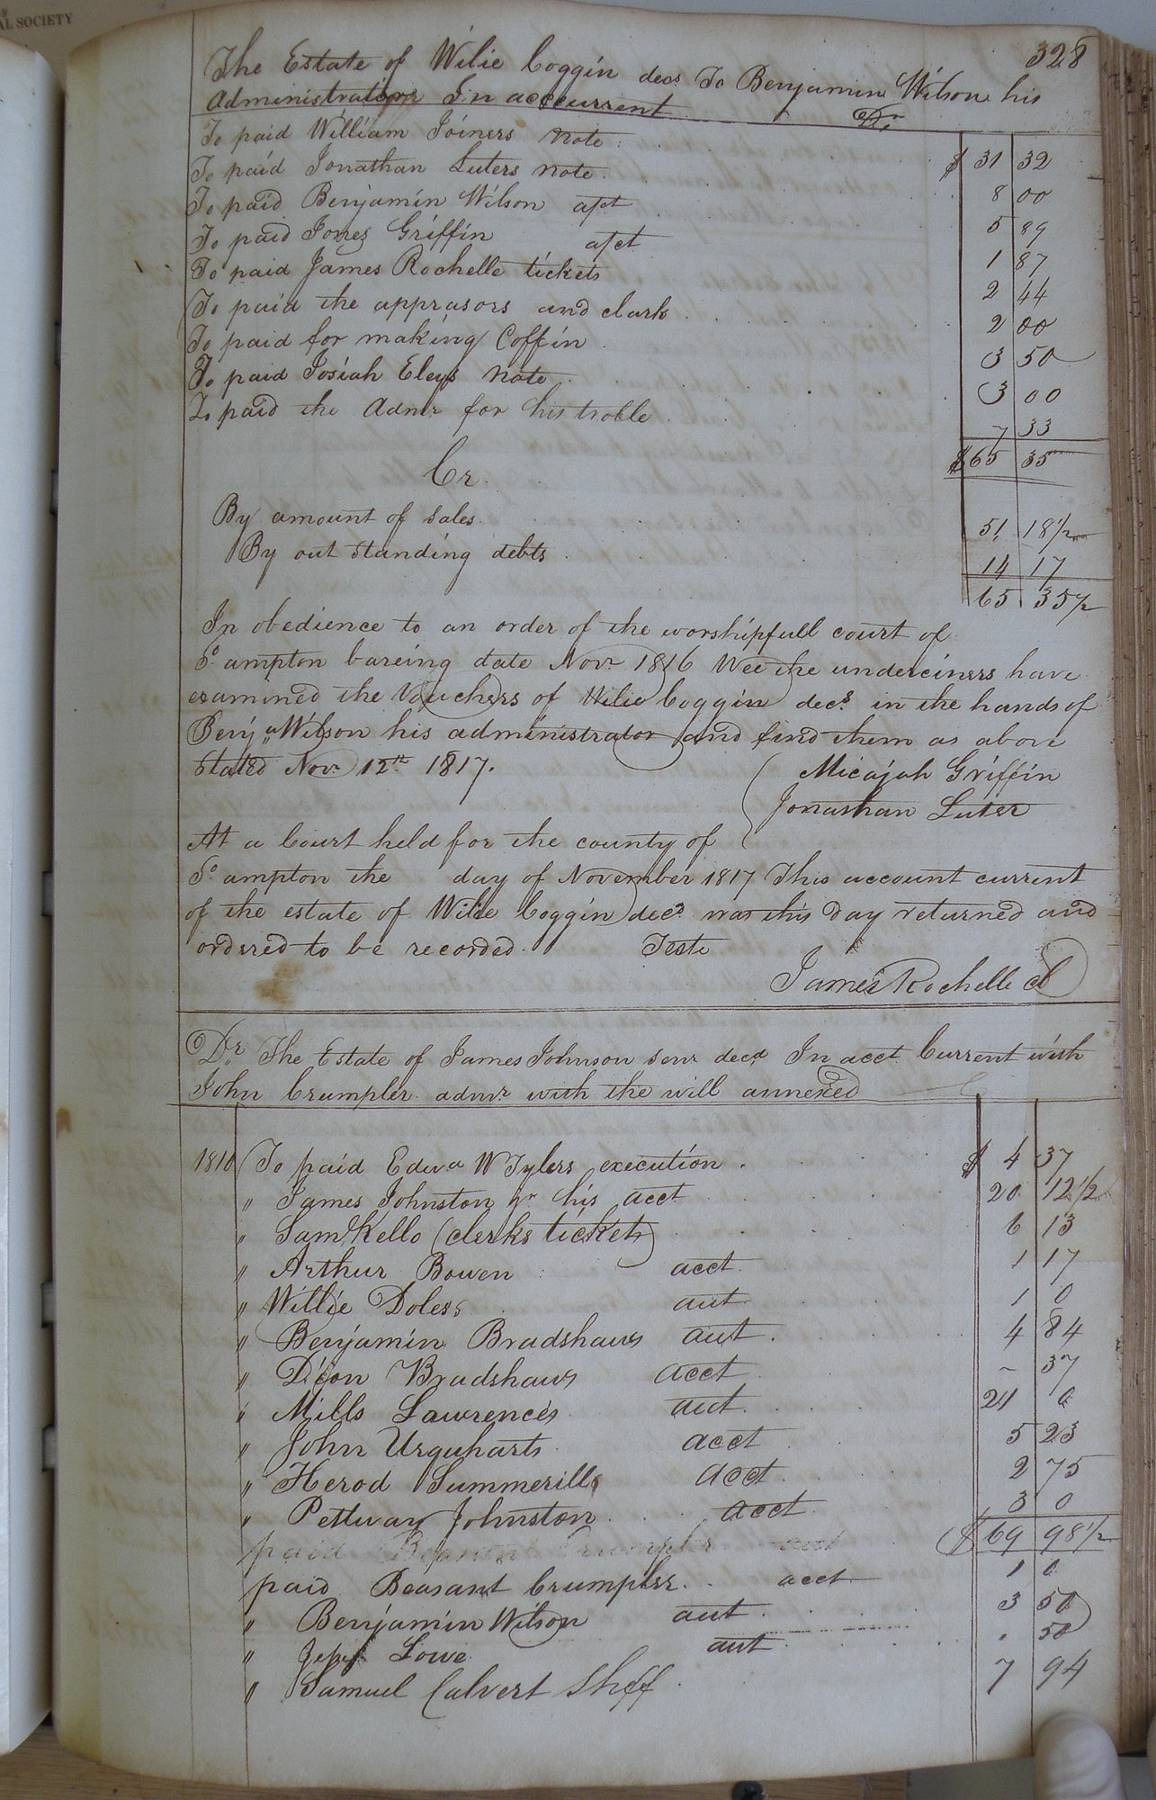 AL SOCIETY
328
The Estate of Wilie Coggin decd To Benjamin Wilson his
Administrator In acccurrent Dr
To paid William Joiners note $ 31 32
To paid Jonathan Luters note 8 00
To paid Benjamin Wilson apt 5 89
To paid Jones Griffin apct 1 87
To paid James Rochelle tickets 2 44
To paid the apprasors and clark 2 00
To paid for making Coffin 3 50
To paid Josiah Eleys note 3 00
To paid the Admr for his troble 7 33
$65 35
Cr
By amount of sales 51 18 1/2
By out standing debts 14 17
65 35 1/2
In obedience to an order of the worshipfull court of
So ampton bareing date Novr 1816 Wee the underciners have
examined the Vouchers of Wilie Coggin decd in the hands of
Benja Wilson his administrator and find them as above
Stated Novr 12th 1817.
Micajah Griffin
Jonathan Luter
At a Court held for the county of
So ampton the day of November 1817 This account current
of the estate of Wilie Coggin decd was this day returned and
ordered to be recorded. Teste
James Rochelle cl
Dr The Estate of James Johnson senr decd In acct Current with
John Crumpler admr with the will annexed
1816 To paid Edwa W Tylers execution $ 4 37
" James Johnston jr his acct 20 12 1/2
" Saml Kello (clerks tickets) 6 13
" Arthur Bowen acct 1 17
" Willie Doless acct 1 0
" Benjamin Bradshaws acct 4 84
" Dixon Bradshaws acct - 37
" Mills Lawrences acct 21 0
" John Urquharts acct 5 23
" Herod Summerills acct 2 75
" Pettway Johnston acct 3 0
paid Beasant Crumpler acct $69 98 1/2
paid Beasant Crumpler acct 1 0
" Benjamin Wilson acct 3 50
" Lowe acct . 50
" Samuel Calvert Shff 7 94